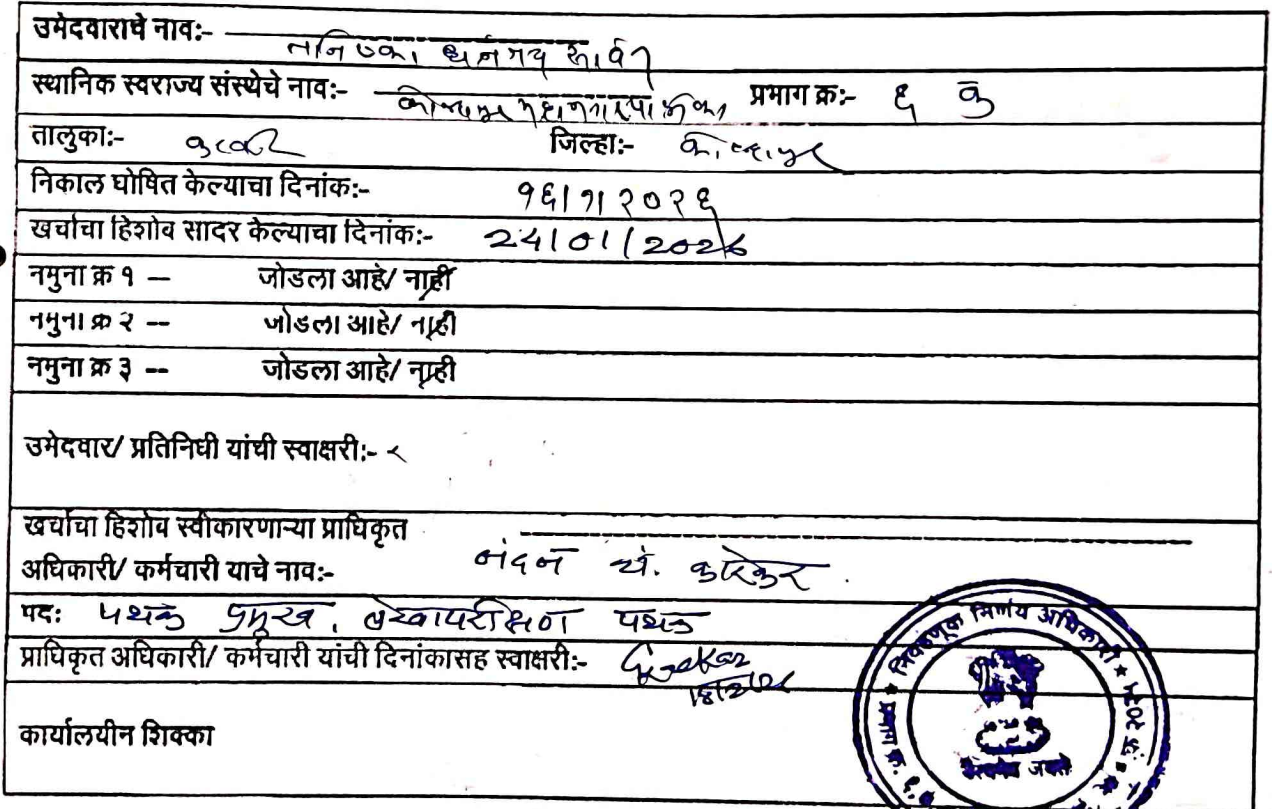 उमेदवाराचे नाव:- तनिष्का धनंजय सावंत
स्थानिक स्वराज्य संस्थेचे नाव:- कोल्हापूर महानगरपालिका प्रभाग क्र:- ६ क
तालुका:- करवीर जिल्हा:- कोल्हापूर
निकाल घोषित केल्याचा दिनांक:- १६/१/२०२६
खर्चाचा हिशोब सादर केल्याचा दिनांक:- 24/01/2026
नमुना क्र १ – जोडला आहे/ नाही
नमुना क्र २ -- जोडला आहे/ नाही
नमुना क्र ३ -- जोडला आहे/ नाही
उमेदवार/ प्रतिनिधी यांची स्वाक्षरी:-
खर्चाचा हिशोब स्वीकारणाऱ्या प्राधिकृत
अधिकारी/ कर्मचारी याचे नाव:- नंदन चं. कारेकर.
पद: पथक प्रमुख, लेखापरीक्षण पथक
प्राधिकृत अधिकारी/ कर्मचारी यांची दिनांकासह स्वाक्षरी:-
कार्यालयीन शिक्का
निवडणूक निर्णय अधिकारी
सत्यमेव जयते